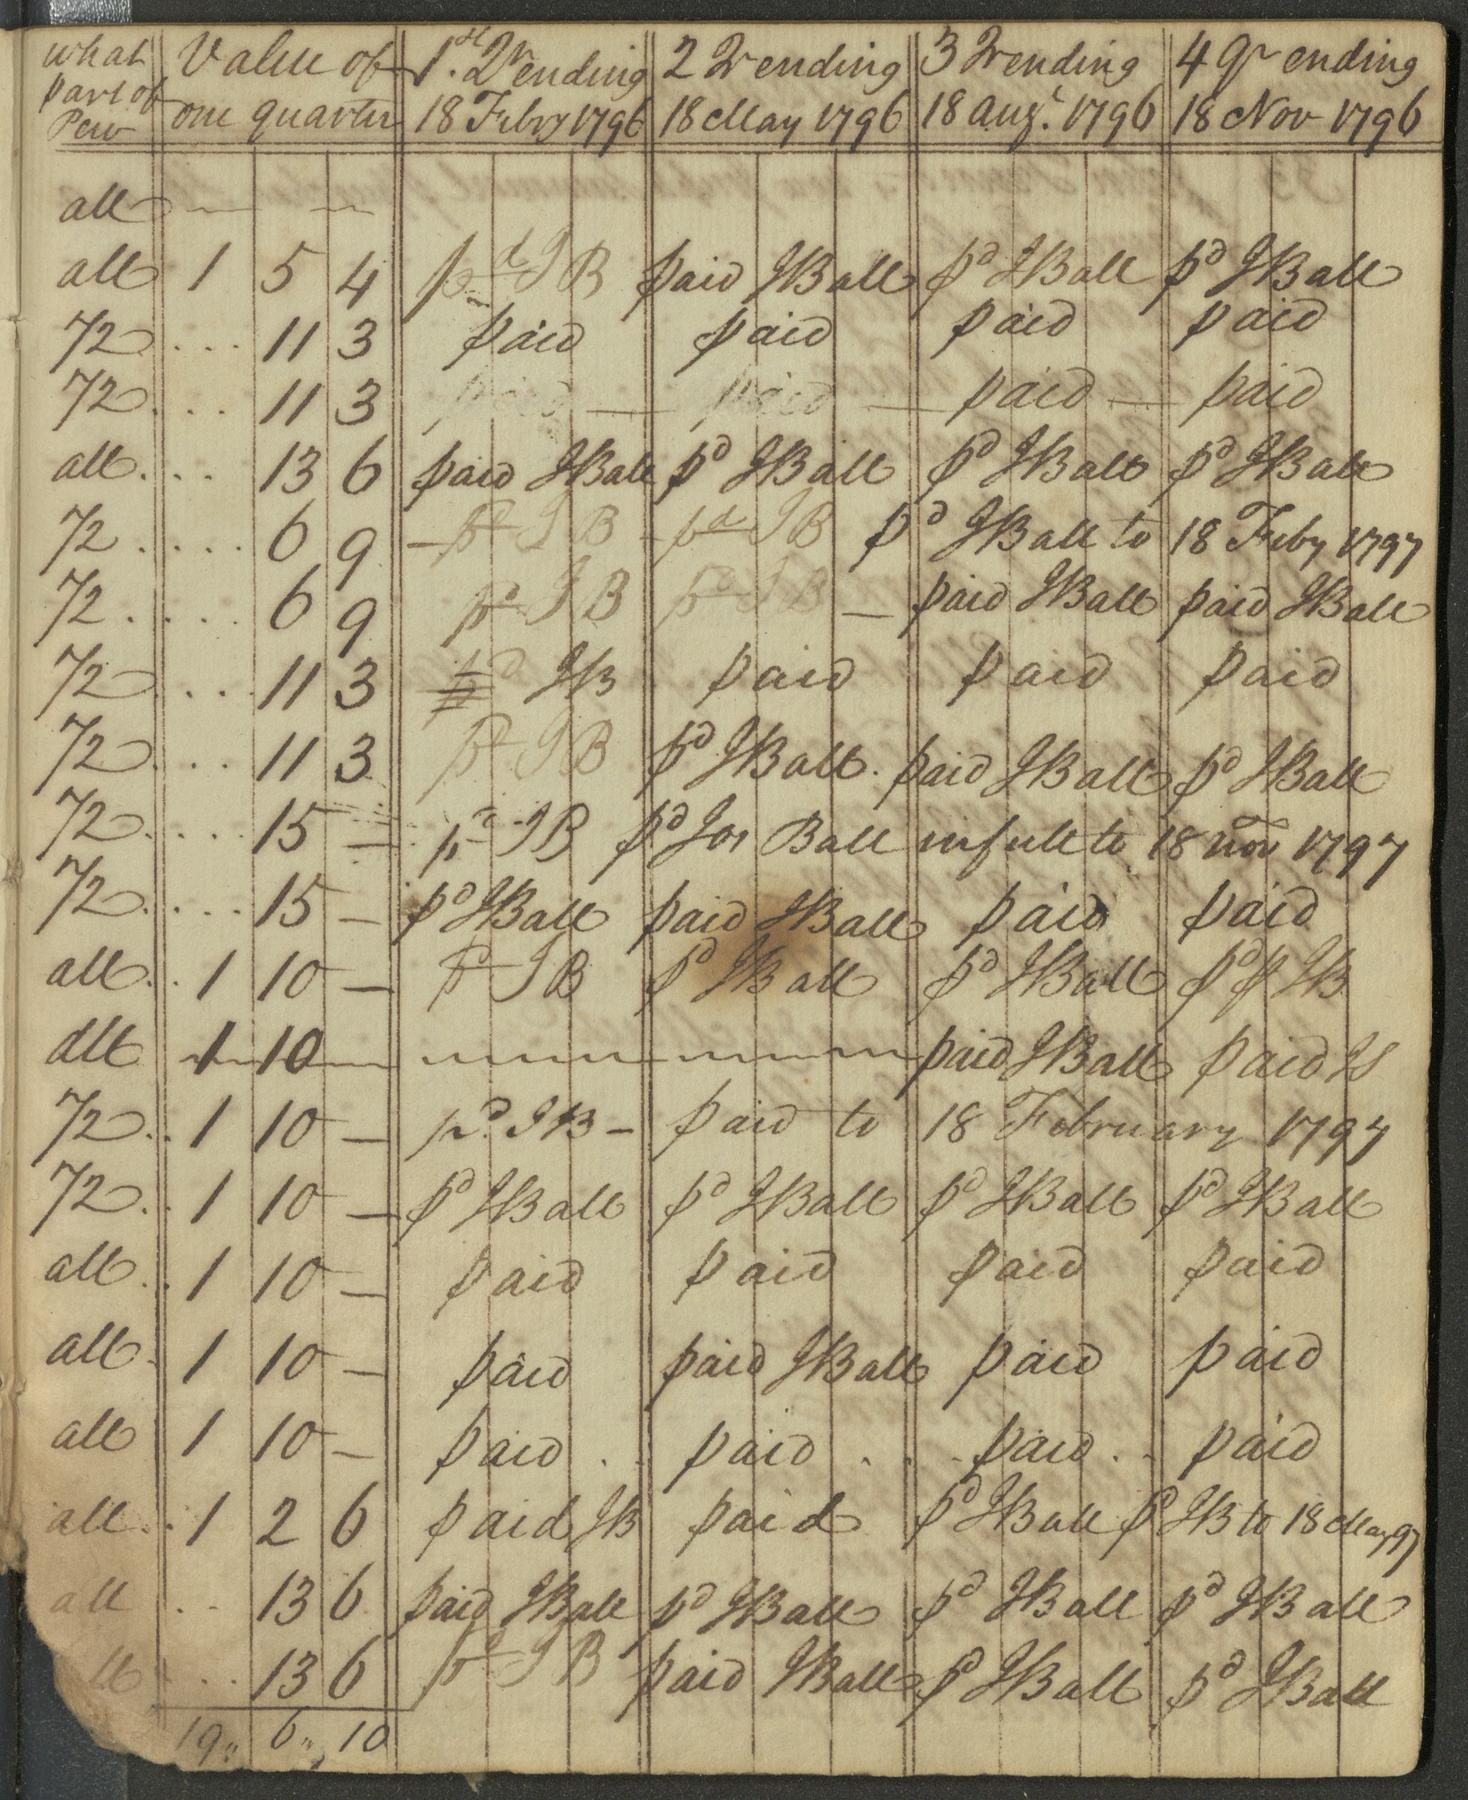 What part of Pew | Value of one quarter | 1st Qr ending 18 Febry 1796 | 2 Qr ending 18 May 1796 | 3 Qr ending 18 augt. 1796 | 4 Qr ending 18 Nov 1796
all
all 1 5 4 pd JB paid JBall pd JBall pd JBall
1/2 11 3 paid paid paid paid
1/2 11 3 paid paid paid paid
all 13 6 paid JBall pd JBall pd JBall pd JBall
1/2 6 9 pd JB pd JB pd JBall to 18 Feby 1797
1/2 6 9 pd JB pd JB paid JBall paid JBall
1/2 11 3 pd JB paid paid paid
1/2 11 3 pd JB pd JBall. paid JBall pd JBall
1/2 15 — pd JB pd Jos Ball in full to 18 Nov 1797
1/2 15 — pd JBall paid JBall paid paid
all 1 10 — pd JB pd JBall pd JBall pd JB
all 1 10 — paid JBall paid
1/2 1 10 — pd. JB – paid to 18 February 1797
1/2 1 10 — pd JBall pd JBall pd JBall pd JBall
all 1 10 — paid paid paid paid
all 1 10 — paid paid JBall paid paid
all 1 10 — paid paid paid paid
all 1 2 6 paid JB paid pd JBall pd JB to 18 May 97
all 13 6 paid JBall pd JBall pd JBall pd JBall
13 6 pd JB paid JBall pd JBall pd JBall
19 " 6 " 10